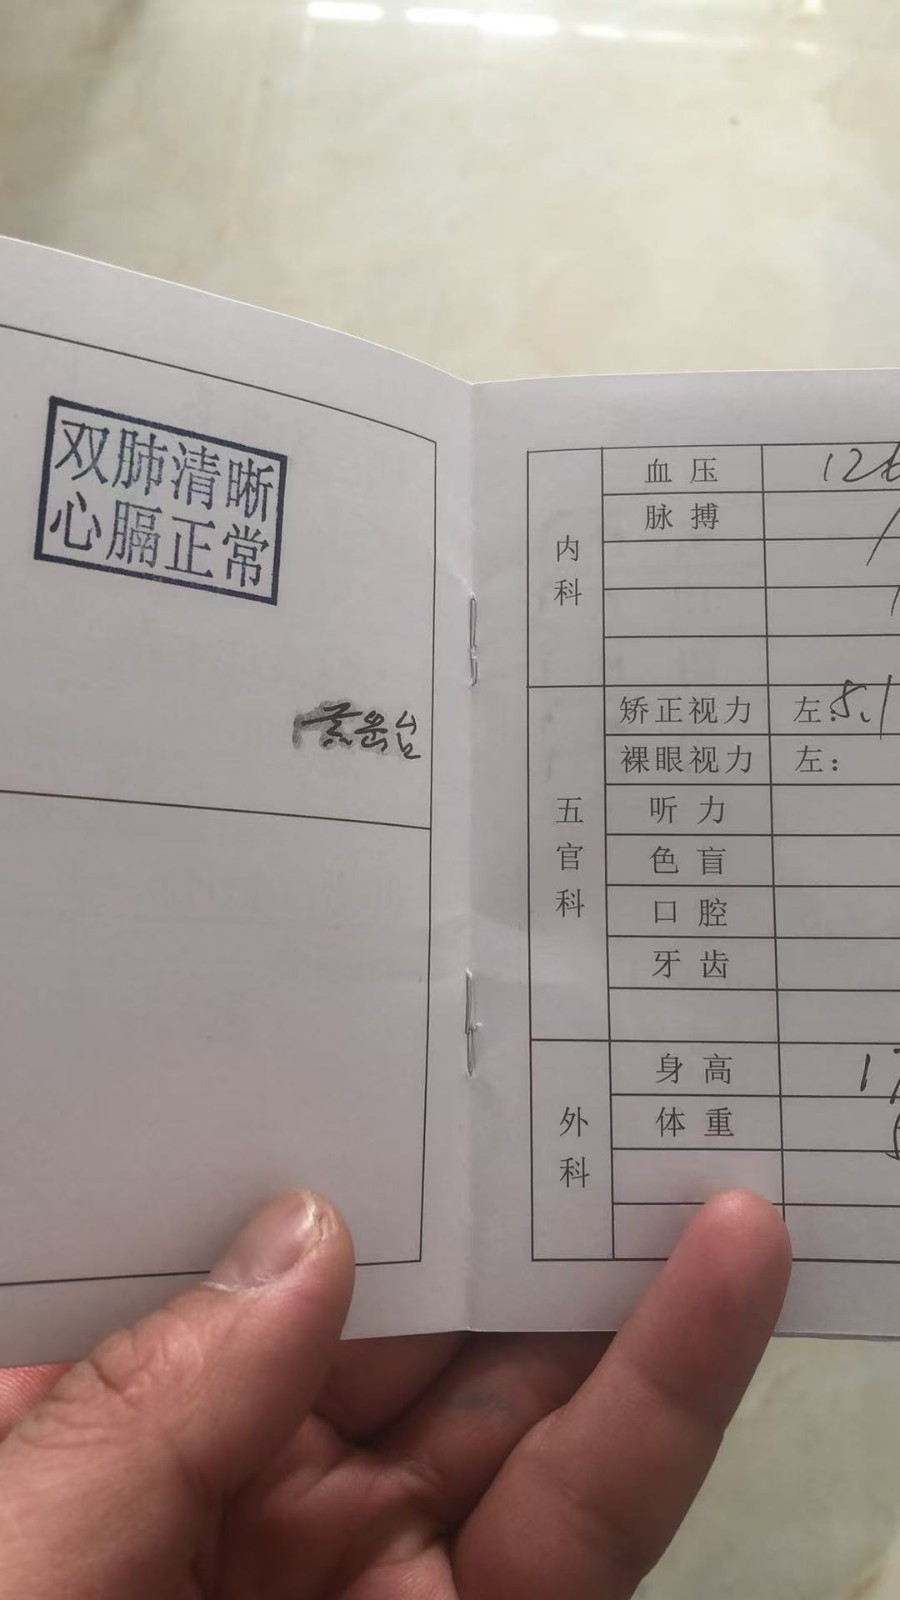 双肺清晰
心膈正常
内科
血压
脉搏
五官科
矫正视力 左:5.1
裸眼视力 左:
听力
色盲
口腔
牙齿
外科
身高
体重